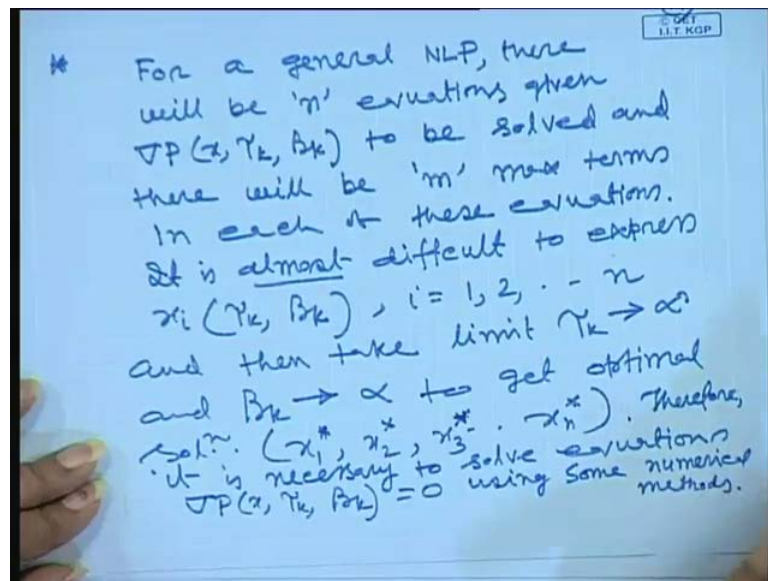 © CET
I.I.T. KGP
* For a general NLP, there
will be 'n' equations given
∇P(x, γk, βk) to be solved and
there will be 'm' max terms
in each of these equations.
It is almost difficult to express
xi (γk, βk), i = 1, 2, . - n
and then take limit γk → ∝
and βk → ∝ to get optimal
solⁿ. (x1*, x2*, x3* - . xn*). Therefore,
it is necessary to solve equations
∇P(x, γk, βk) = 0 using some numerical
methods.